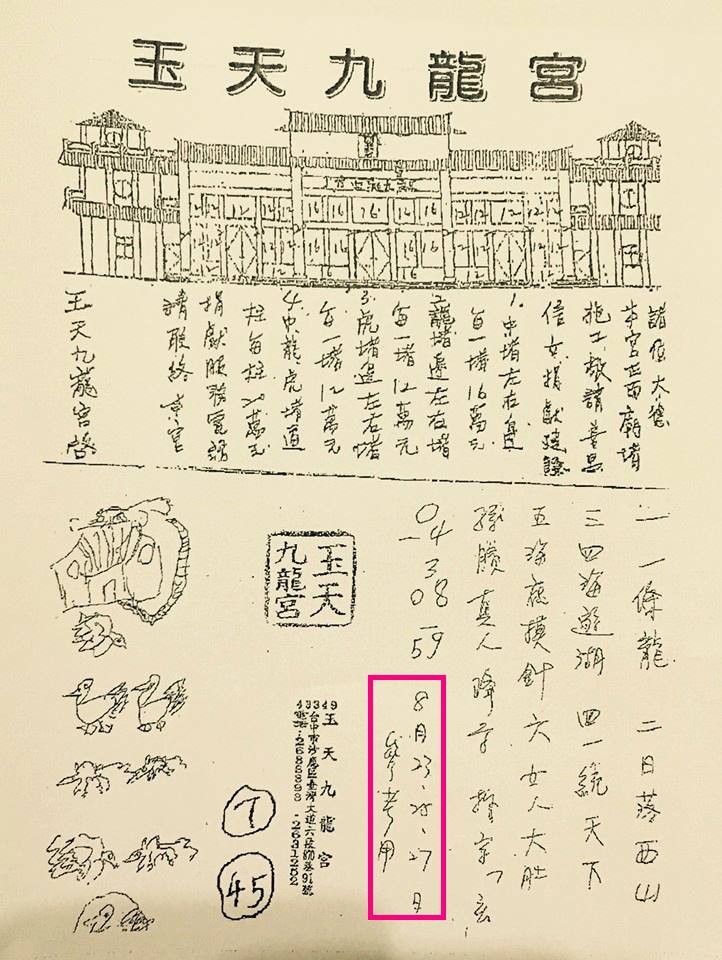 玉天九龍宮
12 12 16 16 16 14 16 12 12 12
諸位大德
本宮正面廟堵
施工敬請善男
信女捐獻建設
1.中堵左右邊
每一堵16萬元
2.龍堵邊左右堵
每一堵12萬元
3.虎堵邊左右堵
每一堵12萬元
4.中龍虎堵通
柱每柱2萬元
捐獻服務電話
請聯絡本宮
玉天九龍宮啓
一 一條龍 二日落西山
三四海遊湖 四一統天下
五海底摸針 六女人大肚
孫臏真人降字
04
38
08
59
8月23、25、27日
參考用
玉天九龍宮
43349
台中市沙鹿區臺灣大道六段
電話:26868398・2631252
玉天九龍宮
7
45